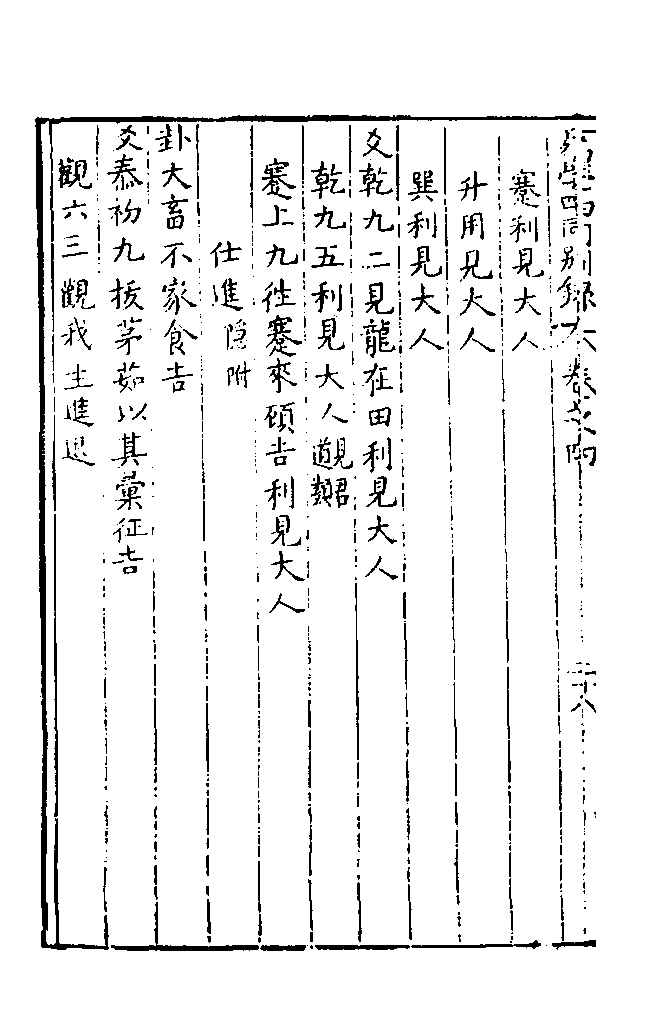 易學四同別錄 卷之四 二十八
蹇利見大人
升用見大人
巽利見大人
爻乾九二見龍在田利見大人
乾九五利見大人見君道類
蹇上九徃蹇來碩吉利見大人
仕進隠附
卦大畜不家食吉
爻泰初九拔茅茹以其彙征吉
觀六三觀我生進退